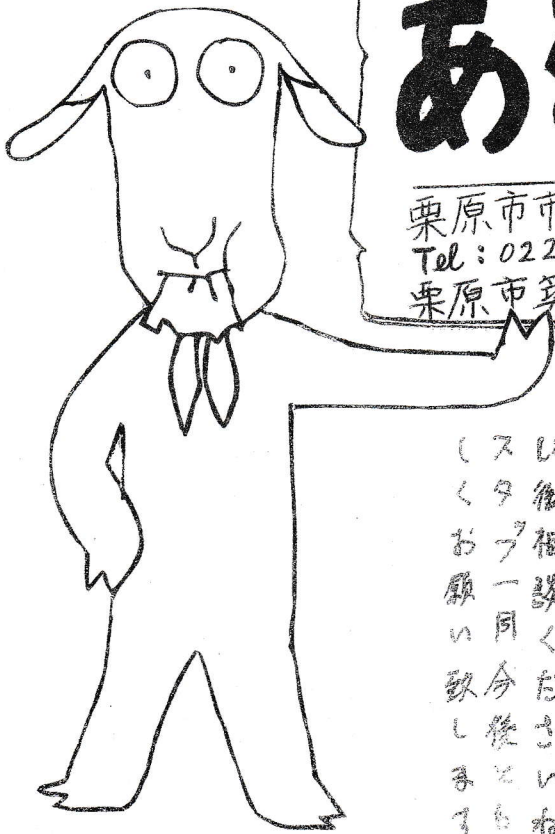 あ
栗原市市
Tel：022
栗原市
相談くださいね
スタッフ一同今後とも
しくお願い致します